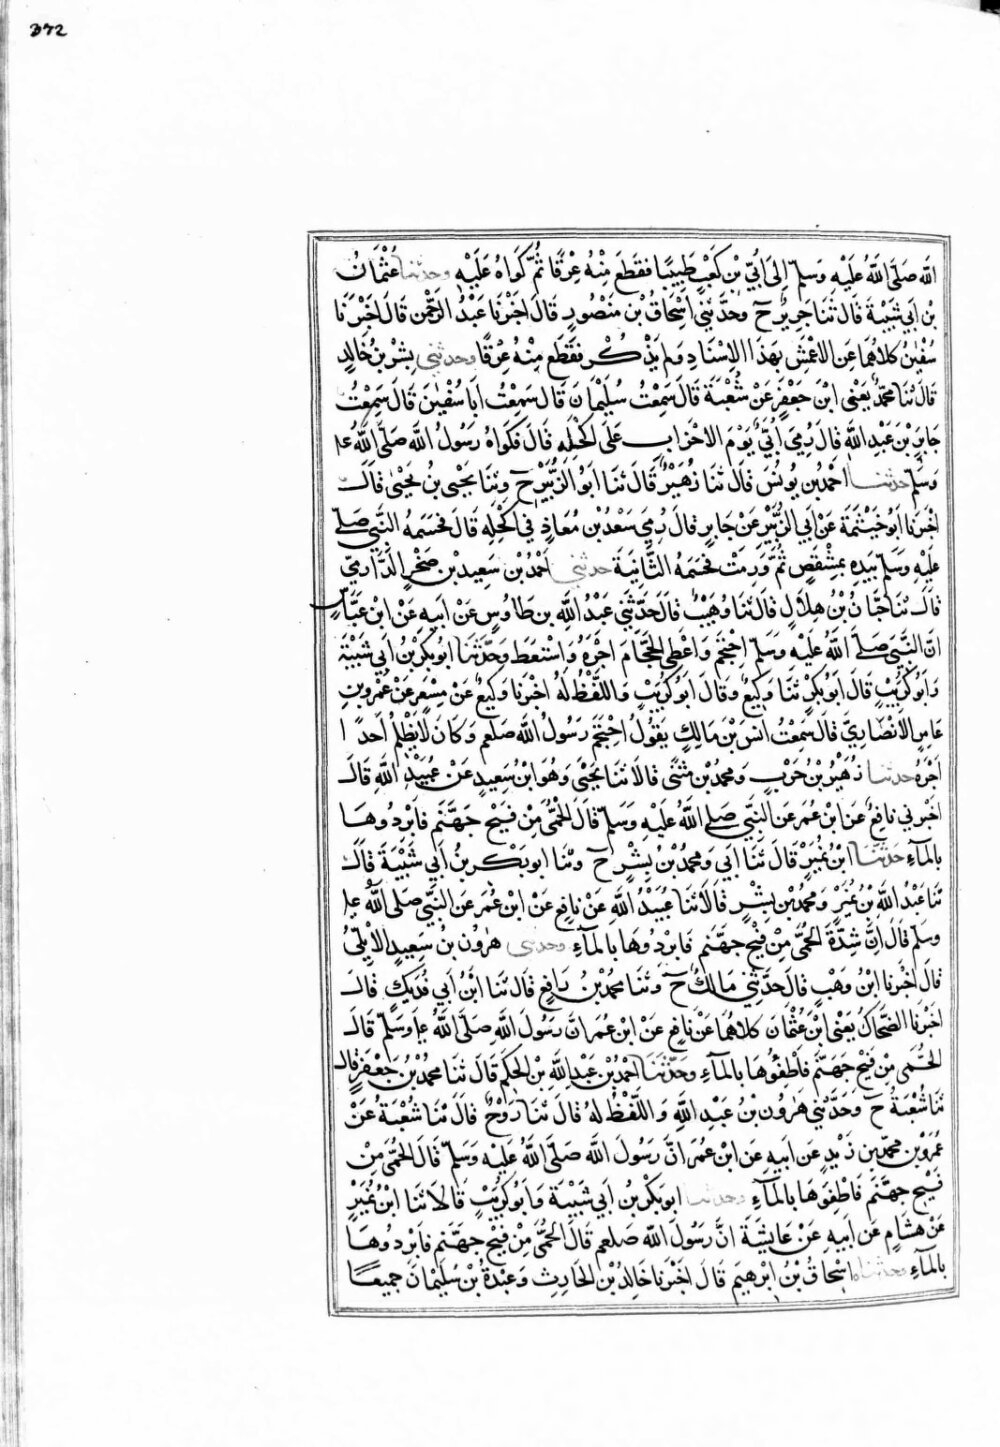 372
الله صَلَّى اللهُ عَلَيْهِ وَسَلَّم اِلىَ اُبَيِّ بْنِ كَعْبٍ طَبِيبًا فقَطَعَ مِنْهُ عِرْقًا ثُمَّ كَوَاهُ عَلَيْهِ وحدّثنا عُثْمَانُ
بْن اَبي شَيْبَةَ قَالَ ثَنَا جَرِيرٌ ح وحَدَّثَني اِسْحَاقُ بْن مَنْصُورٍ قَالَ اَخْبَرَنَا عَبْدُ الرَّحْمنِ قَالَ اَخْبَرَنَا
سُفْيٰنُ كلاهُمَا عَنِ الاَعْمَشِ بِهَذَا الاِسْنَادِ وَلَم يَذْكُر فَقَطَعَ مِنْهُ عِرْقًا وحدثنى بِشْرُ بْنُ خَالِدٍ
قَالَ ثَنَا مُحَمَّدٌ يَعْنى ابْنَ جَعْفَرٍ عَنْ شُعْبَةَ قَالَ سَمِعْتُ سُلَيْمَانَ قَالَ سَمِعْتُ اَبَا سُفْيٰنَ قَالَ سَمِعْتُ
جَابِرَ بْنَ عَبْدِ اللهِ قَالَ رُمِيَ اُبَيٌّ يَوْمَ الاَحْزَابِ عَلَى اَكْحَلِهِ قَالَ فَكَوَاهُ رَسُولُ اللهِ صَلَّى اللهُ علي
وَسَلَّم حدثنا اَحْمَدُ بْن يُونُسَ قَالَ ثَنَا زُهَيْرٌ قَالَ ثَنَا اَبُو الزُّبَيْرِ ح وثَنَا يَحْيَى بنُ يَحْيٰى قَالَ
اَخْبَرَنَا اَبُو خَيْثَمَةَ عَنْ اَبِي الزُّبَيْرِ عَنْ جَابِرٍ قَالَ رُمِيَ سَعْدُ بْنُ مُعَاذٍ فِي اَكْحَلِهِ قَالَ فَحَسَمَهُ النَّبِيُّ صَلَّى
عَلَيْهِ وَسَلَّم بِيَدِهِ بِمِشْقَصٍ ثُمَّ وَرِمَتْ فَحَسَمَهُ الثَّانِيَةَ حدثنى اَحْمَدُ بْنُ سَعِيدِ بْنِ صَخْرٍ الدَّارِمِيُّ
قَالَ ثَنَا حَبَّانُ بْنُ هِلَالٍ قَالَ ثَنَا وُهَيْبٌ قَالَ حَدَّثَنِي عَبْدُ اللهِ بن طَاوُسٍ عَنْ اَبِيهِ عَنْ ابْنِ عَبَّاسٍ
اَنَّ النَّبِيَّ صَلَّى اللهُ عَلَيْهِ وَسَلَّم اِحْتَجَمَ وَاَعْطَى الحَجَّامَ اَجْرَهُ وَاسْتَعَطَ وَحَدَّثَنَا اَبُو بَكْرِ بْنُ اَبِي شَيْبَةَ
وَاَبُو كُرَيْبٍ قَالَ اَبُو بَكْرٍ ثَنَا وَكِيْعٌ وَقَالَ اَبُو كُرَيْبٍ وَاللَّفْظُ لَهُ اَخْبَرَنَا وَكِيعٌ عَنْ مِسْعَرٍ عَنْ عَمْرِو بنِ
عَامِرٍ الاَنْصَارِيِّ قَالَ سَمِعْتُ اَنَسَ بْنَ مَالِكٍ يَقُولُ احْتَجَمَ رَسُولُ الله صلعم وَكَانَ لَا يَظْلِمُ اَحَدًا
اَجْرَهُ حدثنا زُهَيْرُ بْنُ حَرْبٍ وَمُحَمَّدُ بْنُ مُثَنَّى قَالَا ثَنَا يَحْيَى وَهُوَ ابْنُ سَعِيدٍ عَنْ عُبَيْدِ اللهِ قَالَ
اَخْبَرَنِي نَافِعٌ عَنِ ابْنِ عُمَرَ عَنِ النَّبِيِّ صَلَّى اللهُ عَلَيْهِ وَسَلَّم قَالَ الحُمَّى مِنْ فَيْحِ جَهَنَّمَ فَابْرُدُوهَا
بِالمَآءِ حدثنا ابْنُ نُمَيْرٍ قَالَ ثَنَا اَبِي وَمُحَمَّدُ بْنُ بِشْرٍ ح وثَنَا اَبُو بَكْرِ بنُ اَبِي شَيْبَةَ قَالَ
ثَنَا عَبْدُ اللهِ بْنُ نُمَيْرٍ وَمُحَمَّدُ بْنُ بِشْرٍ قَالَا ثَنَا عُبَيْدُ اللهِ عَنْ نَافِعٍ عَنْ ابْنِ عُمَرَ عَنِ النَّبِيِّ صَلَّى اللهُ علي
وَسَلَّم قَالَ اِنَّ شِدَّةَ الحُمَّى مِنْ فَيْحِ جَهَنَّمَ فَابْرُدُوهَا بِالمَآءِ وحدثنى هٰرُونُ بنُ سَعِيدٍ الاَيْلِيُّ
قَالَ اَخْبَرَنَا ابْنُ وَهْبٍ قَالَ حَدَّثَنِي مَالِكٌ ح وثَنَا مُحَمَّدُ بْنُ رَافِعٍ قَالَ ثَنَا ابْنُ اَبِي فُدَيْكٍ قَالَ
اَخْبَرَنَا الضَّحَّاكُ يَعْنى ابْنَ عُثْمَانَ كلاهُمَا عَنْ نَافِعٍ عَنْ ابْنِ عُمَرَ اَنَّ رَسُولَ اللهِ صَلَّى اللهُ علي وَسَلَّم قَالَ
الحُمَّى مِنْ فَيْحِ جَهَنَّمَ فَاَطْفِئُوهَا بِالمَآءِ وَحَدَّثَنَا اَحْمَدُ بْنُ عَبْدِ اللهِ بْنِ الحَكَمِ قَالَ ثَنَا مُحَمَّدُ بْنُ جَعْفَرٍ قَالَ
ثَنَا شُعْبَةُ ح وَحَدَّثَنِي هٰرُونُ بْنُ عَبْدِ اللهِ وَاللَّفْظُ لَهُ قَالَ ثَنَا رَوْحٌ قَالَ ثَنَا شُعْبَةُ عَنْ
عُمَرَ بْنِ مُحَمَّدِ بنِ زَيْدٍ عَن اَبِيهِ عَن ابْنِ عُمَرَ انَّ رَسُولَ اللهِ صَلَّى اللهُ عَلَيْهِ وَسَلَّم قَالَ الحُمَّى مِنْ
فَيْحِ جَهَنَّمَ فَاَطْفِئوهَا بِالمَآءِ وحدثنا اَبُو بَكْرِ بنُ اَبِي شَيْبَةَ وَاَبُو كُرَيْبٍ قَالَا ثَنَا ابْنُ نُمَيْرٍ
عَنْ هِشَامٍ عَن اَبِيهِ عَنْ عَايِشَةَ اَنَّ رَسُولَ اللهِ صلعم قَالَ الحُمَّى مِنْ فَيْحِ جَهَنَّمَ فَابْرُدُوهَا
بِالمَآءِ وحدثناه اِسْحَاقُ بْنُ ابْرهِيمَ قَالَ اَخْبَرَنَا خَالِدُ بْنُ الحَارِثِ وَعَبْدَةُ بْنُ سُلَيْمَانَ جَمِيعًا